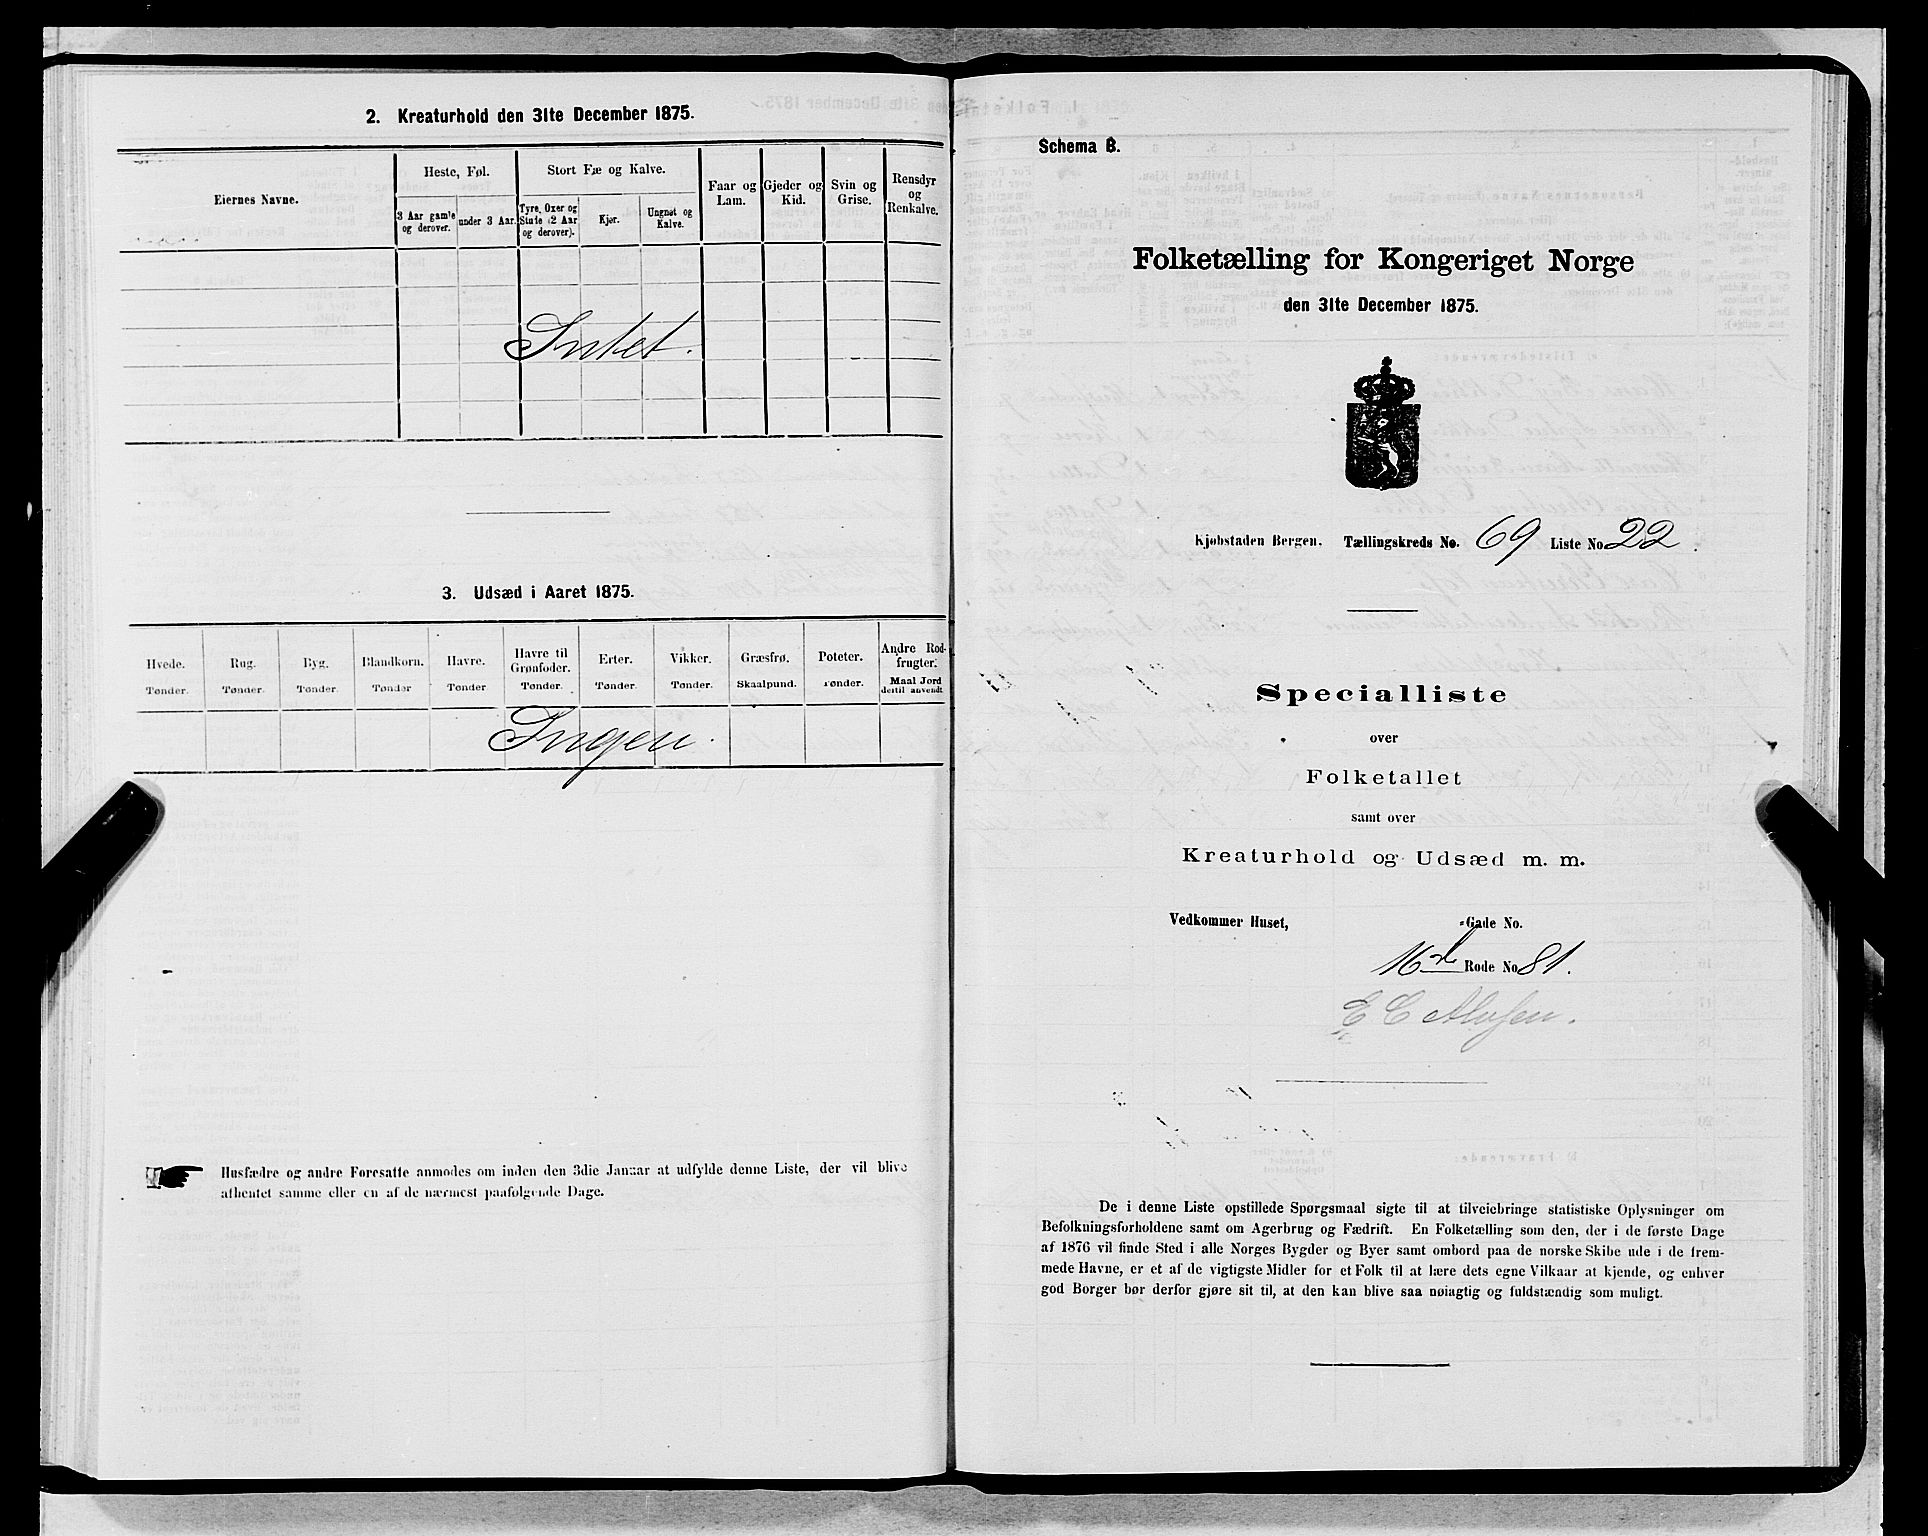 2. Kreaturhold den 31te December 1875.
Eiernes Navne.
Heste, Føl.
Stort Fæ og Kalve.
Faar og Lam.
Gjeder og Kid.
Svin og Grise.
Rensdyr og Renkalve.
3 Aar gamle og derover.
under 3 Aar.
Tyre, Oxer og Stute (2 Aar og derover).
Kjør.
Ungnøt og Kalve.
Intet.
3. Udsæd i Aaret 1875.
Hvede. Tønder.
Rug. Tønder.
Byg. Tønder.
Blandkorn. Tønder
Havre. Tønder
Havre til Grønfoder. Tønder.
Erter. Tønder.
Vikker. Tønder.
Græsfrø. Skaalpund.
Poteter. Tønder.
Andre Rodfrugter. Maal Jord dertil anvendt
Ingen.
Husfædre og andre Foresatte anmodes om inden den 3die Januar at udfylde denne Liste, der vil blive
afhentet samme eller en af de nærmest paafølgende Dage.
Schema B.
Folketælling for Kongeriget Norge
den 31te December 1875.
Kjøbstaden Bergen. Tællingskreds No. 69 Liste No 22.
Specialliste
over
Folketallet
samt over
Kreaturhold og Udsæd m. m.
Vedkommer Huset, -Gade No.
16de Rode No 81.
E C
De i denne Liste opstillede Spørgsmaal sigte til at tilveiebringe statistiske Oplysninger om
Befolkningsforholdene samt om Agerbrug og Fædrift. En Folketælling som den, der i de første Dage
af 1876 vil finde Sted i alle Norges Bygder og Byer samt ombord paa de norske Skibe ude i de frem-
mede Havne, er et af de vigtigste Midler for et Folk til at lære dets egne Vilkaar at kjende, og enhver
god Borger bør derfor gjøre sit til, at den kan blive saa nøiagtig og fuldstændig som muligt.